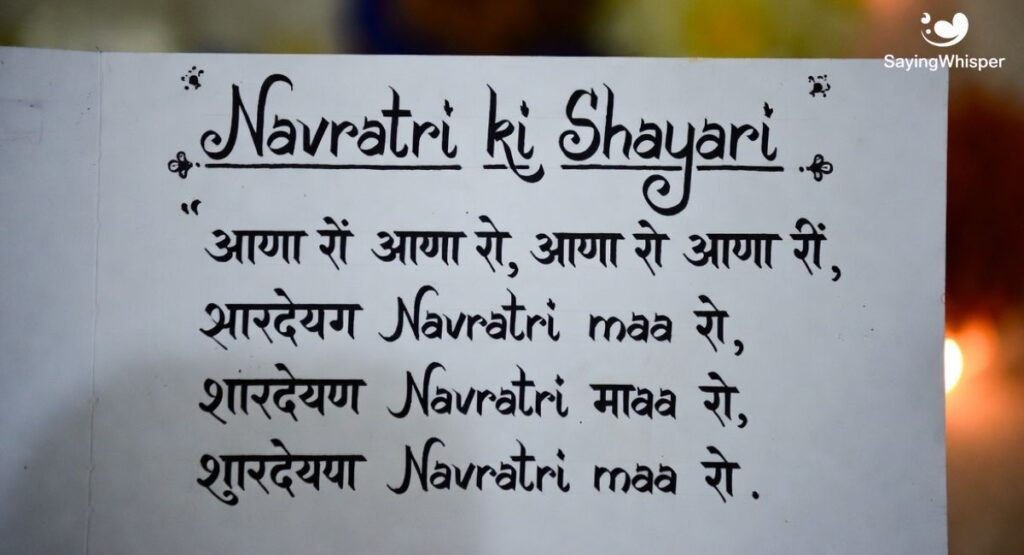 SayingWhisper
Navratri ki Shayari
“
आणा रों आणा रो, आणा रो आणा रीं,
शारदेयग Navratri maa रो,
शारदेयण Navratri माaa रो,
शुारदेयया Navratri maa रो.